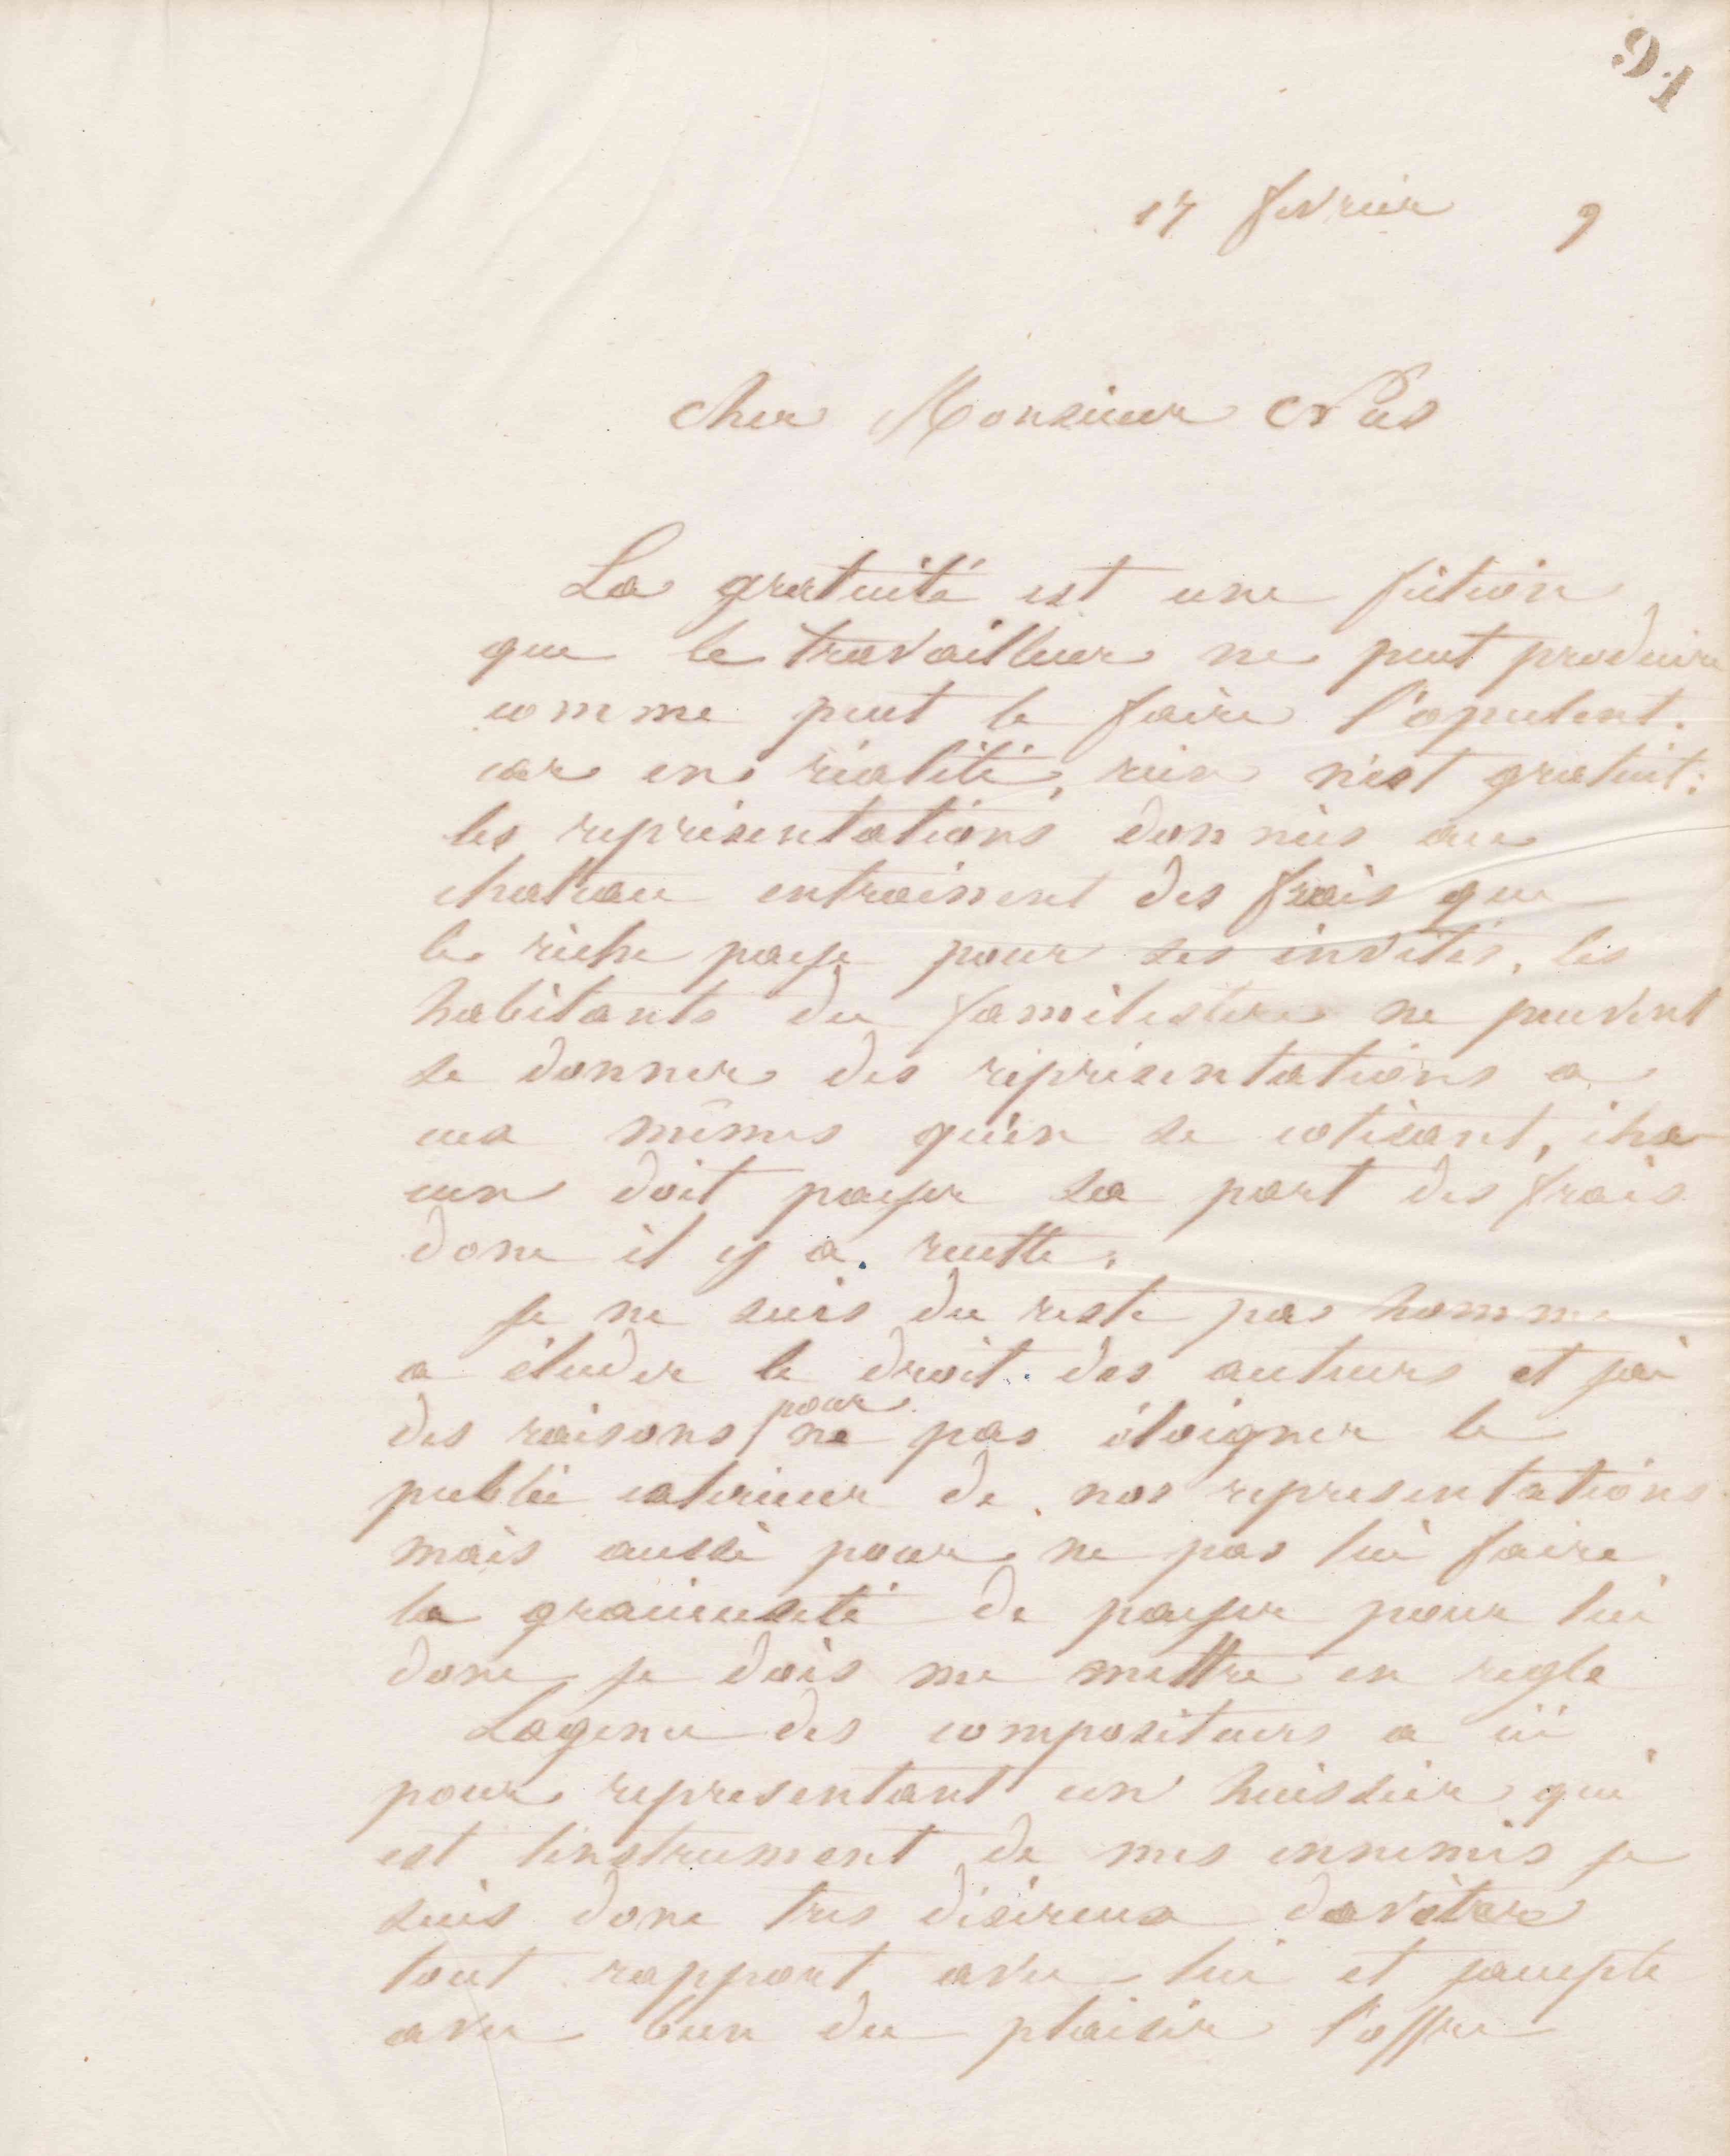 91
17 fevrier 9
cher Monsieur Nus
La gratuité est une fiction
que le travailleur ne peut produire
comme peut le faire l'opulent.
car en réalité, rien n'est gratuit:
les représentations données au
chateau entrainent des frais que
le riche paye pour ses invités, les
habitants du familistere ne peuvent
se donner des représentations a
eux mêmes qu'en se cotisant, cha
cun doit payer sa part des frais
donc il y a recette.
Je ne suis du reste pas homme
a éluder le droit des auteurs et j'ai
des raisons pour ne pas éloigner le
public exterieur de nos representations
mais aussi pour ne pas lui faire
la gracieuseté de payer pour lui
donc je dois me mettre en regle
Lagence des compositeurs a ici
pour representant un huissier qui
est linstrument de mes ennemis je
suis donc tres désireux davitere
tout rapport avec lui et jaccepte
avec bien du plaisir l'offre